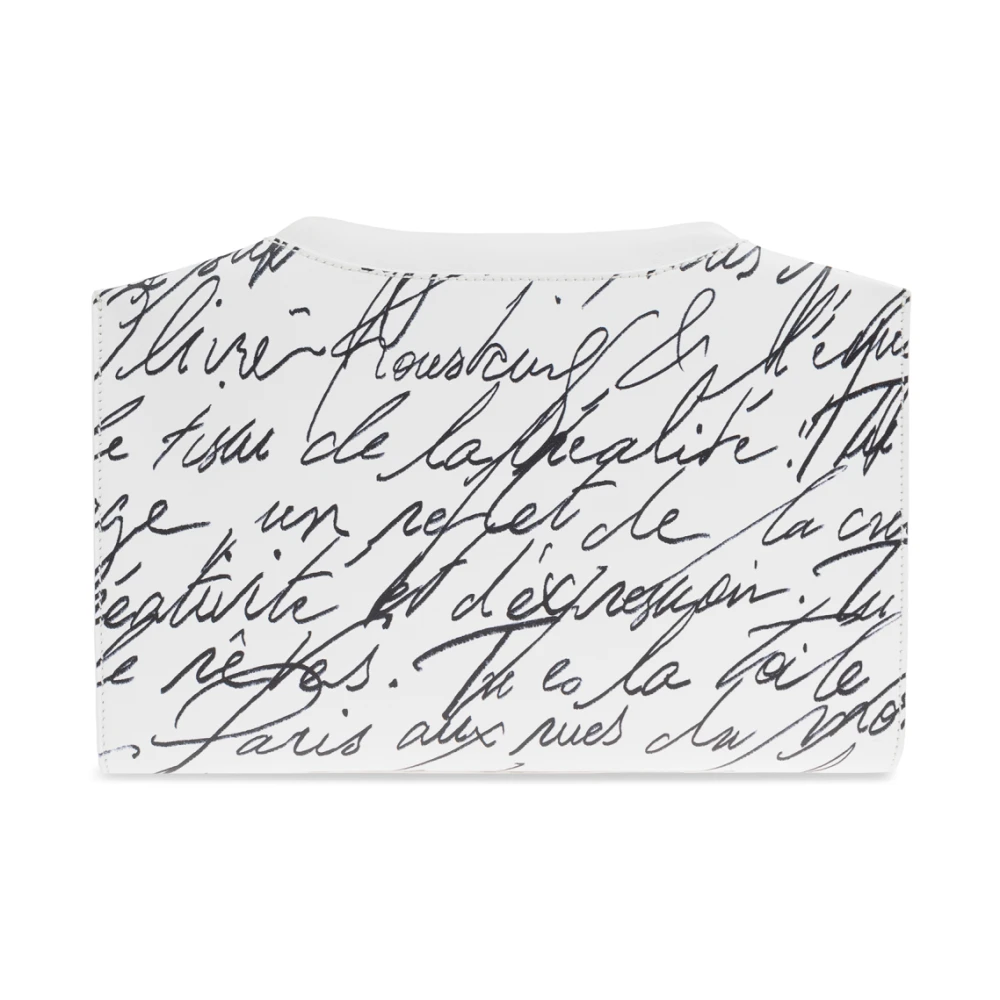 Olivier Rousteing & l'équi
le tissu de la réalité. Tu
ge, un reflet de la cré
réativité et d'expression. Tu
de rêves. Tu es la toile
Paris aux rues du mo